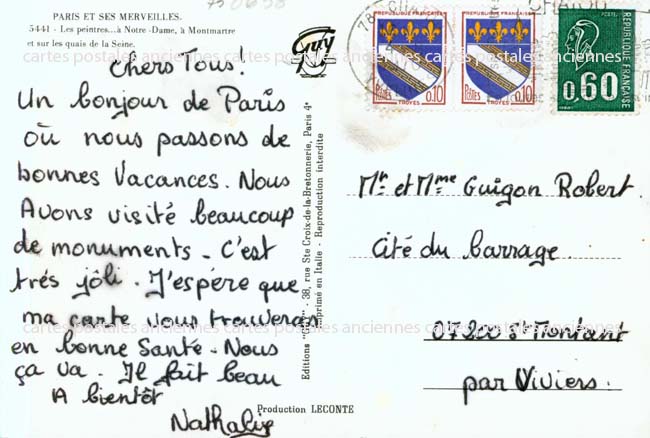 PARIS ET SES MERVEILLES.
5441 - Les peintres...à Notre-Dame, à Montmartre
et sur les quais de la Seine.
Chers Tous!
Un bonjour de Paris
où nous passons de
bonnes Vacances. Nous
Avons visité beaucoup
de monuments - C'est
trés jôli. J'espère que
ma carte vous trouveras
en bonne Santé. Nous
ça va. Il fait beau
A bientôt
Nathalie
Editions "GUY" - 38, rue Ste Croix-de-la-Bretonnerie, Paris 4e
Imprimé en Italie - Reproduction interdite
Production LECONTE
Guy
REPUBLIQUE FRANÇAISE
POSTES
0,10
TROYES
REPUBLIQUE FRANÇAISE
POSTES
0,10
TROYES
POSTES
REPUBLIQUE FRANÇAISE
0,60
CHATOU
Mr et Mme Guigon Robert.
Cité du barrage.
07200 St Montant
par Viviers.
cartes postales anciennes cartes postales anciennes cartes postales anciennes
cartes postales anciennes cartes postales anciennes cartes postales anciennes